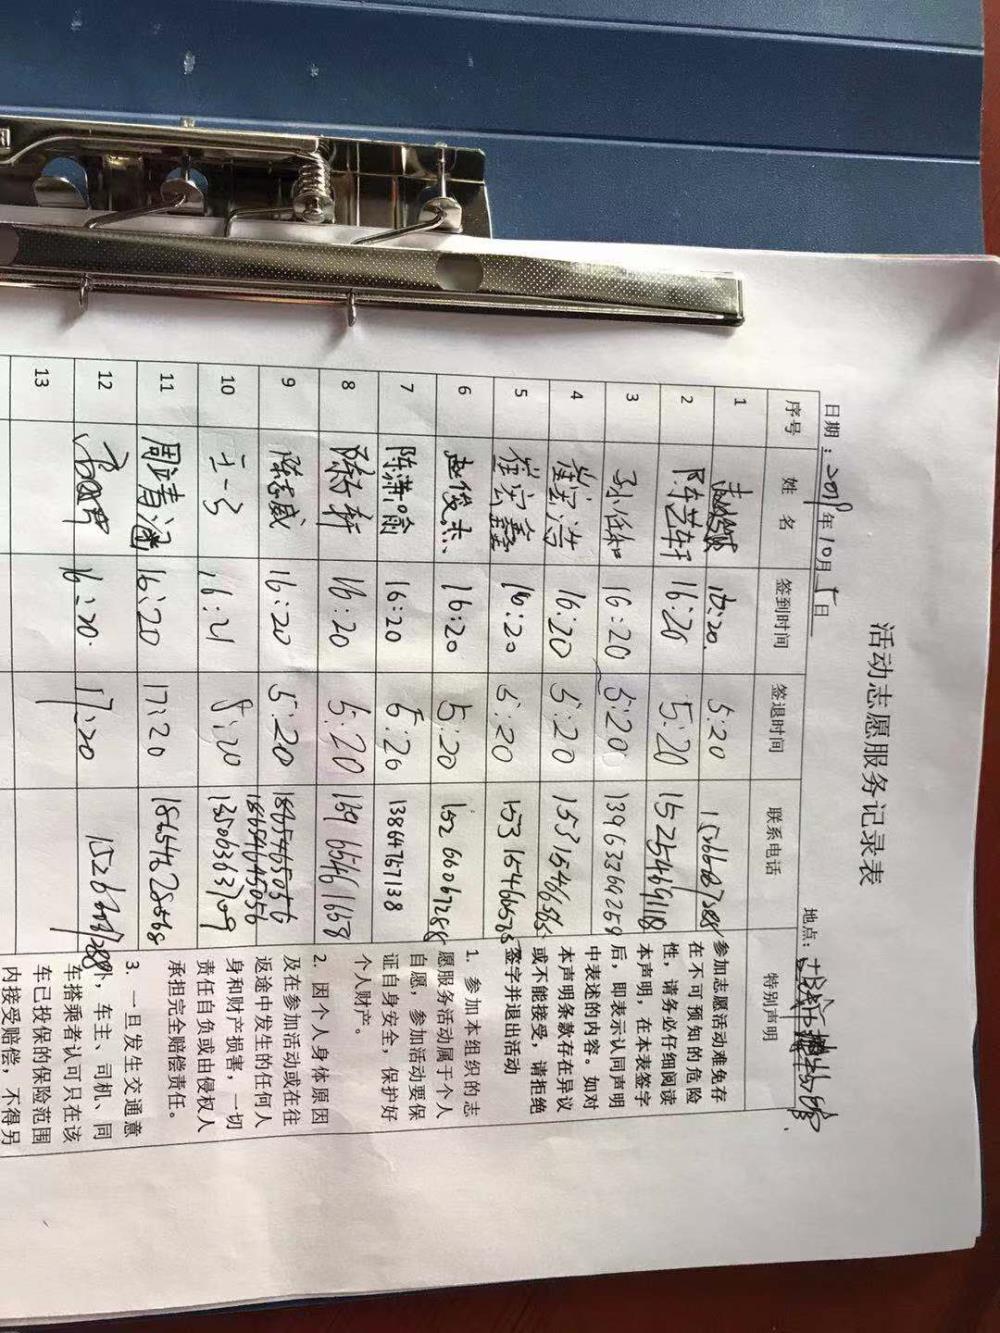 活动志愿服务记录表
日期：2019年10月5日 地点：
序号 姓名 签到时间 签退时间 联系电话 特别声明
1 16:20 5:20
2 陈艺轩 16:20 5:20 15254691118
3 孙任和 16:20 5:20 13963769259
4 崔宝浩 16:20 5:20 15315464565
5 崔宏鑫 16:20 5:20
6 赵俊杰 16:20 5:20 15266067288
7 陈潇喻 16:20 5:20 13864767138
8 陈轩 16:20 5:20 16965461658
9 陈志威 16:20 5:20 18654645056
18654645056
10 16:21 5:20 13506363709
11 周靖涵 16:20 17:20 18654628568
12 16:20 17:20
13
参加志愿活动难免存
在不可预知的危险
性，请务必仔细阅读
本声明，在本表签字
后，即表示认同声明
中表述的内容。如对
本声明条款存在异议
或不能接受，请拒绝
签字并退出活动
1. 参加本组织的志
愿服务活动属于个人
自愿，参加活动要保
证自身安全，保护好
个人财产。
2. 因个人身体原因
及在参加活动或在往
返途中发生的任何人
身和财产损害，一切
责任自负或由侵权人
承担完全赔偿责任。
3. 一旦发生交通意
，车主、司机、同
车搭乘者认可只在该
车已投保的保险范围
内接受赔偿，不得另